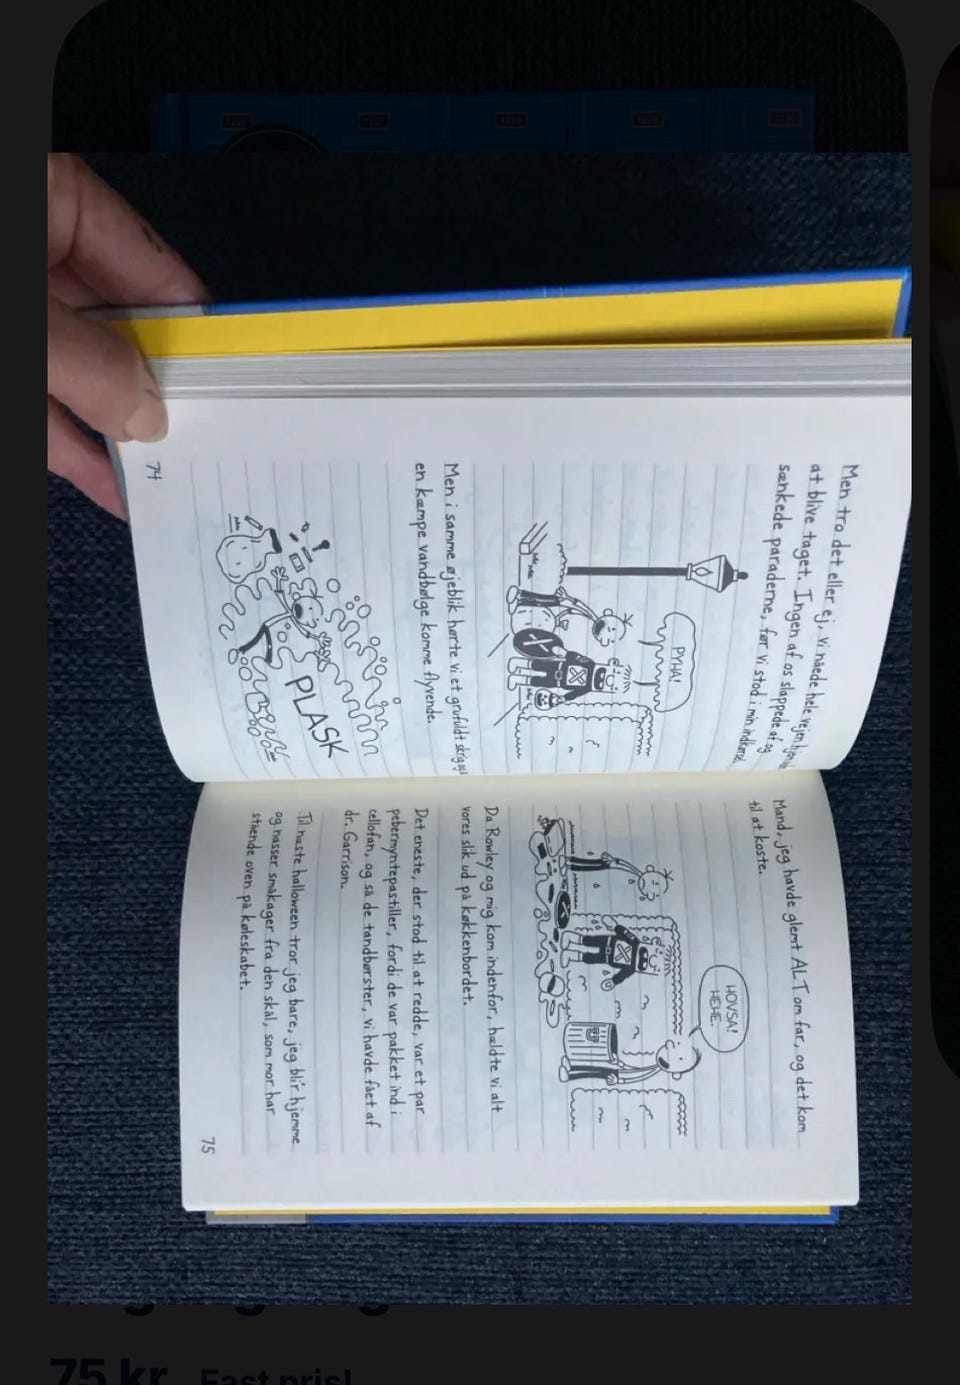 Men tro det eller ej, vi nåede hele vejen
at blive taget. Ingen af os slappede af og
sænkede paraderne, før vi stod i min indkørsel.
PYHA!
Men i samme øjeblik hørte vi et grufuldt skrig og så
en kæmpe vandbølge komme flyvende.
PLASK
74
Mand, jeg havde glemt ALT om far, og det kom
til at koste.
HOVSA!
HEHE.
Da Rowley og mig kom indenfor, hældte vi alt
vores slik ud på køkkenbordet.
Det eneste, der stod til at redde, var et par
pebermyntepastiller, fordi de var pakket ind i
cellofan, og så de tandbørster, vi havde fået af
dr. Garrison.
Til næste halloween tror jeg bare, jeg bli'r hjemme
og nasser småkager fra den skål, som mor har
stående oven på køleskabet.
75
75 kr
Fast pris!